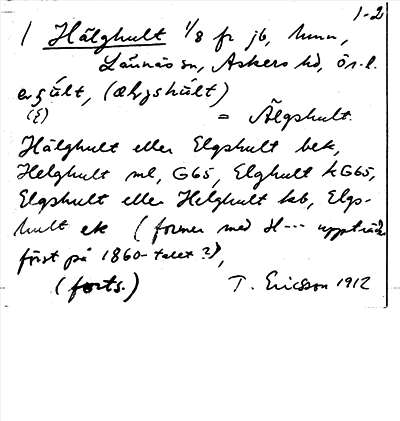 1-2
/ Hälghult 1/8 fr jb,
Lännäs sn, Askers hd, Ör. l.
(ælgshúlt)
= Älgshult.
Hälghult eller Elgshult bek,
Helghult ml, G65, Elghult kG65,
Elgshult eller Helghult kb, Elgs-
hult ek (former med H--- uppträda
först på 1860-talet?),
(forts.) T. Ericsson 1912